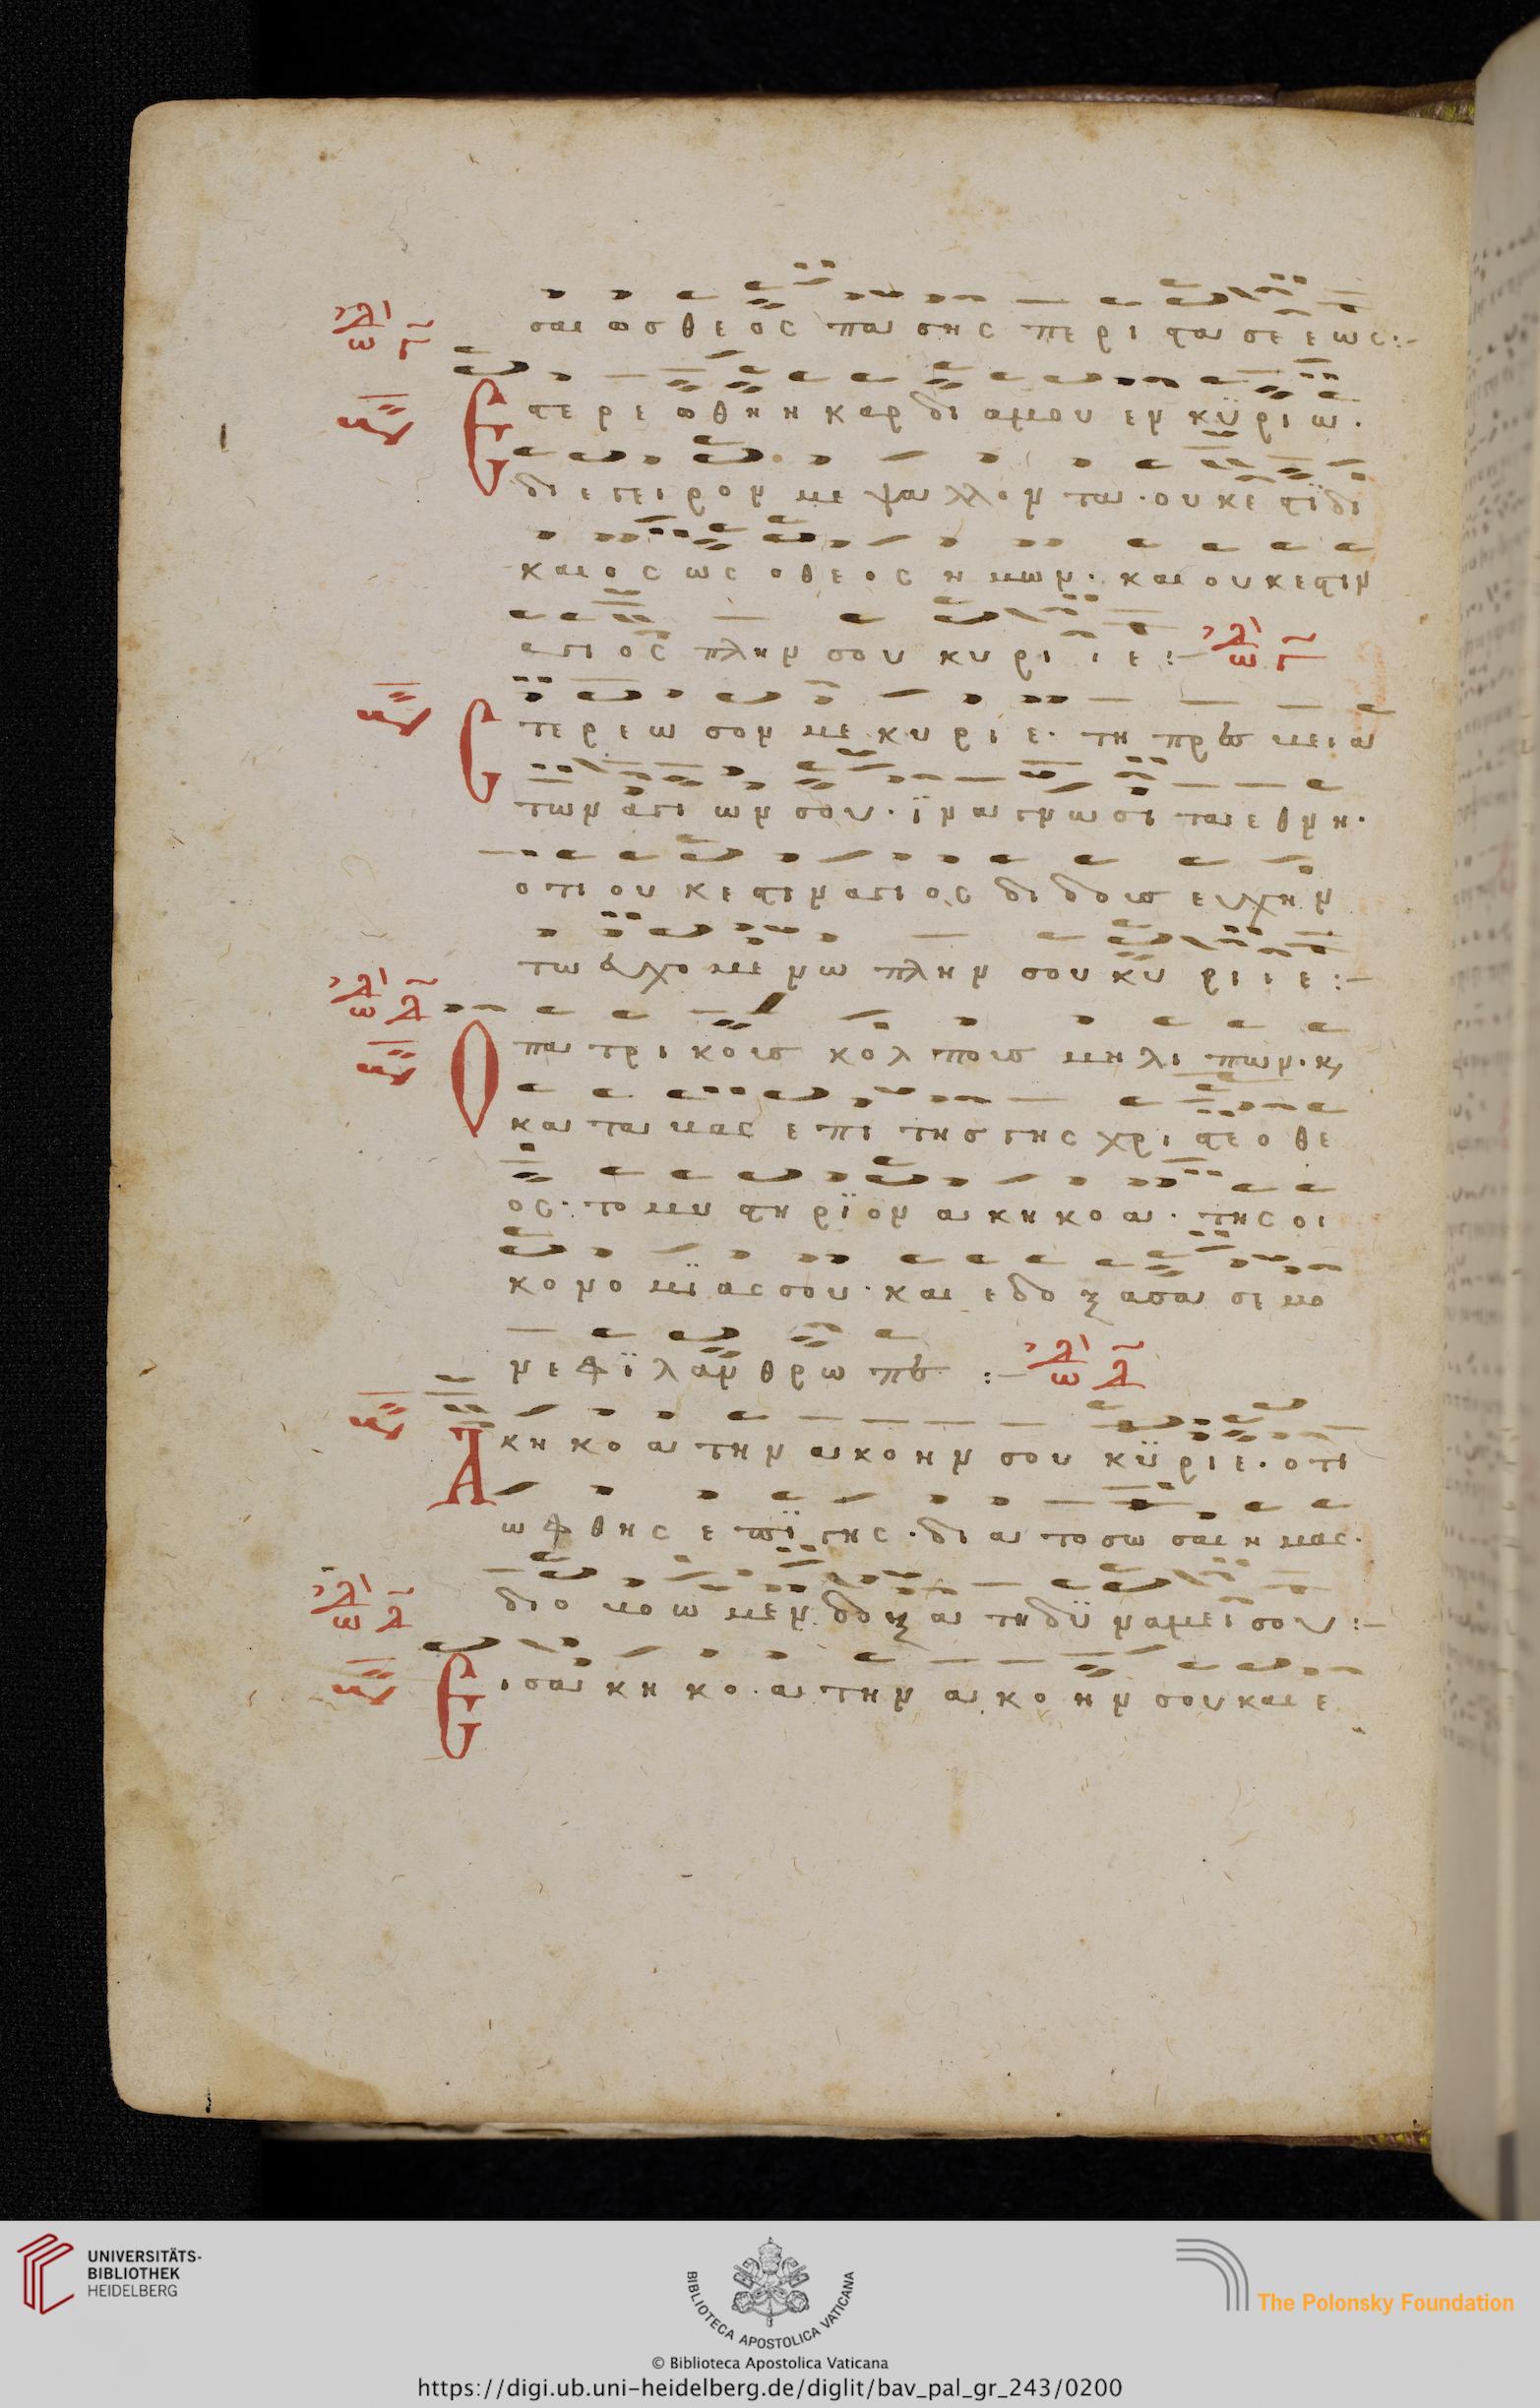 σαι ωσ θε ος πα σης πε ρι στα σε ε ως :-
ᾠδὴ γ
Ε στε ρε ω θη η καρ δι α μου εν κϋ ρι ω .
δι ε γει ρον με ψα λλον τα . ου κε στϊ δι
και ος ως ο θε ος η μων . και ου κε στιν
α γι ος πλην σου κυ ρι ι ε :- ᾠδὴ γ
С τε ρε ω σον με κυ ρι ε . τη πρε
των α γι ων σου . ϊ να γνω σι τα ε θνη .
ο τι ου κε στιν α γι ος δι δους ευ χην
τω ευ χο με νω πλην σου κυ ρι ι ε :-
ᾠδὴ δ
Ο πα τρι κους κολ πους μη λι πων . κ,
κα τα βας ε πι της γης χρι στε ο θε
ος . το μυ στη ρϊ ον α κη κο α . της οι
κο νο μϊ ας σου . και ε δο ξα σα σε μο
νε φϊ λαν θρω πε :- ᾠδὴ δ
Α κη κο α την α κο ην σου κϋ ρι ε . ο τι
ω φθης ε πϊ γης . δι α το σω σαι η μας .
δι ο βο ω μεν δο ξα τη δϋ να μει σου :-
ᾠδὴ δ
Ε ισ α κη κο . α την α κο ην σου και ε
UNIVERSITÄTS-
BIBLIOTHEK
HEIDELBERG
BIBLIOTECA APOSTOLICA VATICANA
The Polonsky Foundation
© Biblioteca Apostolica Vaticana
https://digi.ub.uni-heidelberg.de/diglit/bav_pal_gr_243/0200